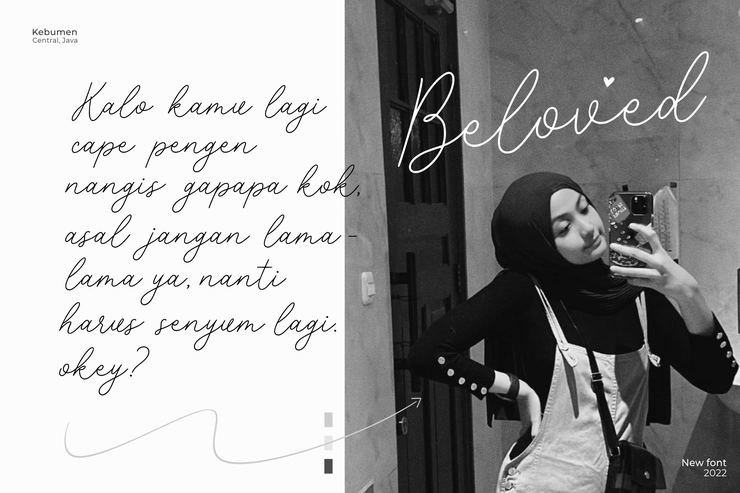 Kebumen
Central, Java
Kalo kamu lagi
cape pengen
nangis gapapa kok,
asal jangan lama-
lama ya, nanti
harus senyum lagi.
okey?
Beloved
New font
2022